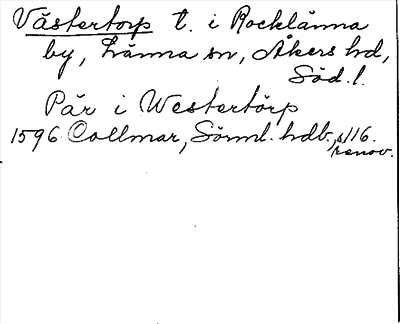 Västertorp t. i Rocklänna
by, Länna sn, Åkers hd,
Söd. l.
Pär i Westertörp
1596 Collmar, Sörml. hdb., s116.
renov.